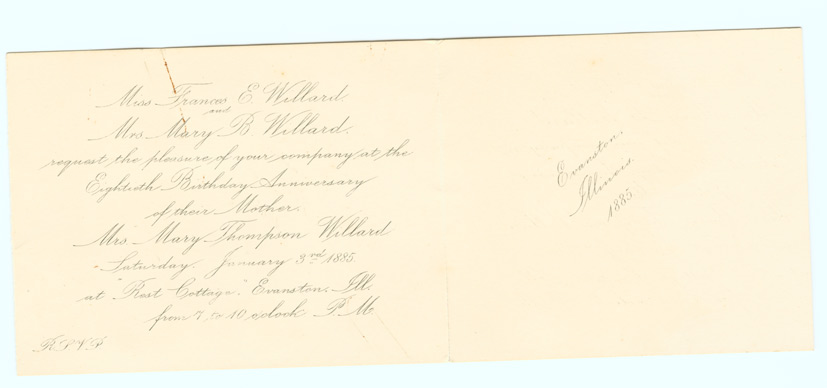 Miss Frances E. Willard.
and
Mrs Mary B. Willard.
request the pleasure of your company at the
Eightieth Birthday Anniversary
of their Mother.
Mrs. Mary Thompson Willard
Saturday. January 3rd 1885.
at "Rest Cottage," Evanston. Ill.
from 7 to 10 o'clock P.M.
R.S.V.P.
Evanston.
Illinois.
1885